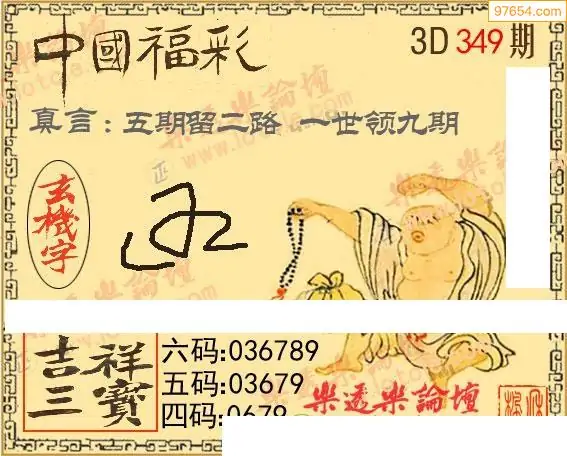 97654.com
中國福彩
3D 349 期
真言：五期留二路 一世领九期
玄機字
吉祥三寶
六码:036789
五码:03679
四码:0679
樂透樂論壇